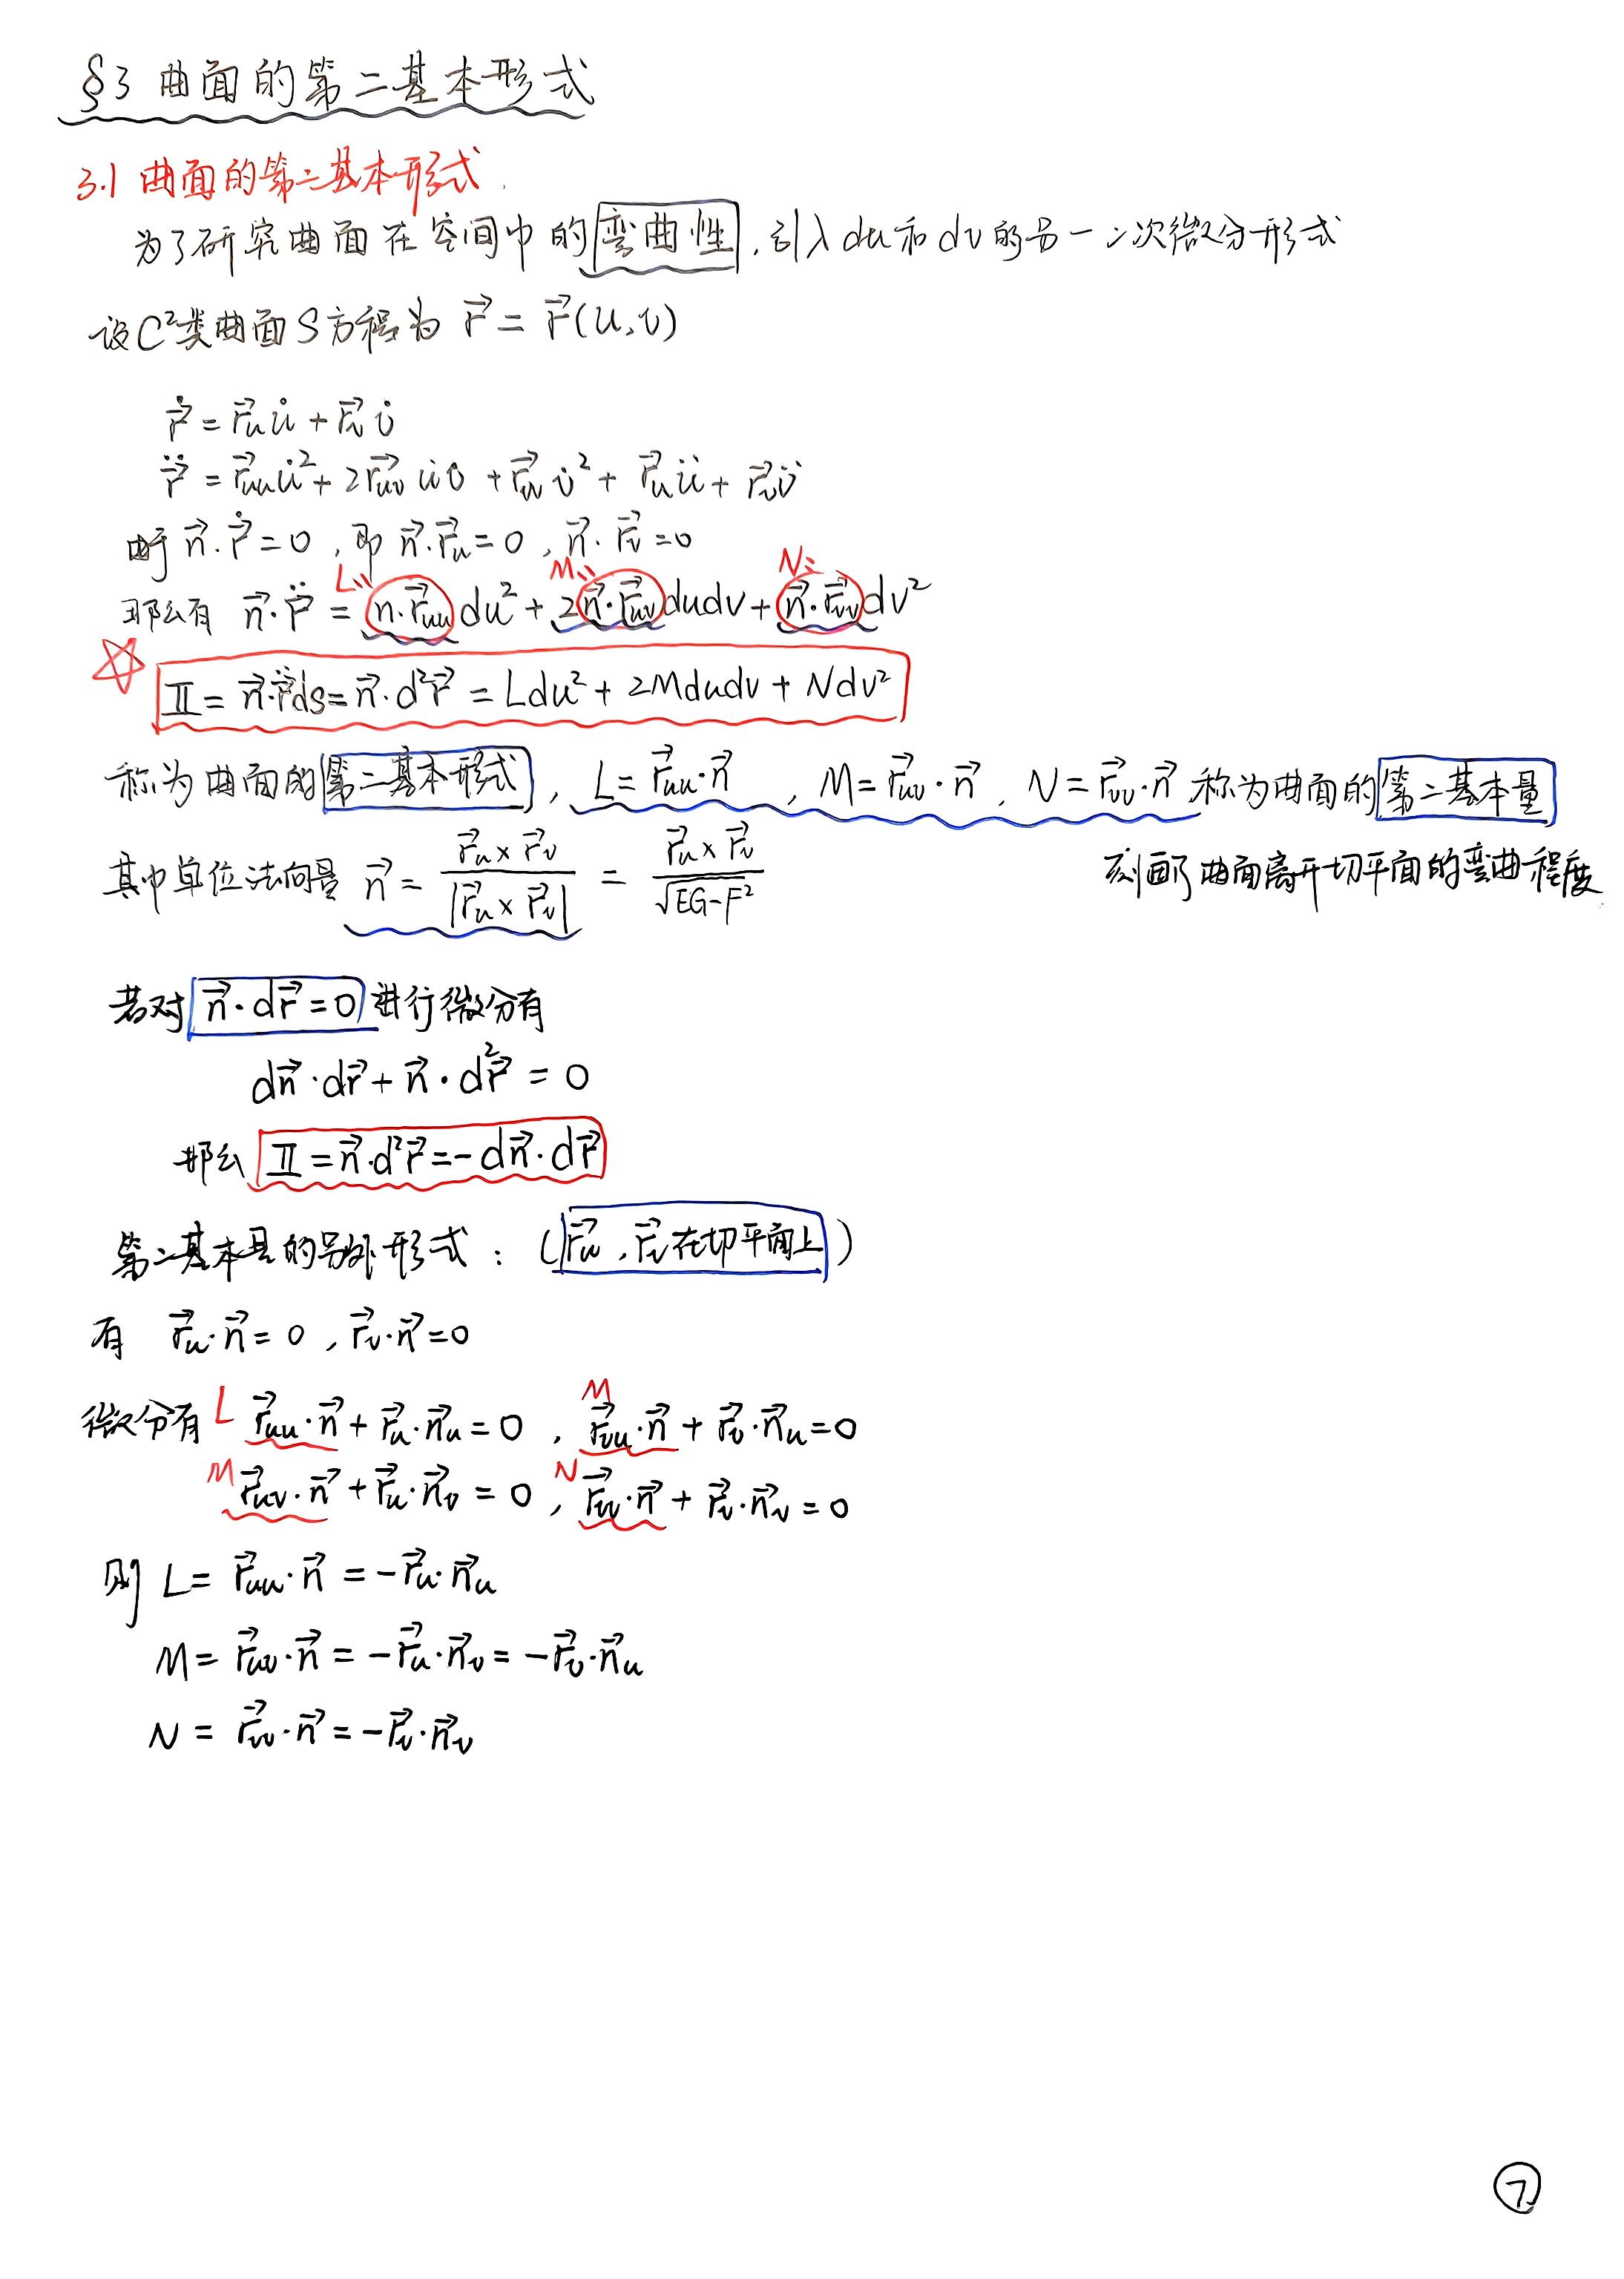 §3 曲面的第二基本形式
3.1 曲面的第二基本形式.
为了研究曲面在空间中的弯曲性,引入du和dv的另一二次微分形式
设C²类曲面S方程为 r⃗ = r⃗(u,v)
ṙ⃗ = r⃗ᵤu̇ + r⃗ᵥv̇
r̈⃗ = r⃗ᵤᵤu̇² + 2r⃗ᵤᵥu̇v̇ + r⃗ᵥᵥv̇² + r⃗ᵤü + r⃗ᵥv̈
由于 n⃗·ṙ⃗ = 0 , 即 n⃗·r⃗ᵤ = 0 , n⃗·r⃗ᵥ = 0
L:: M:: N::
那么有 n⃗·r̈⃗ = n·r⃗ᵤᵤ du² + 2n⃗·r⃗ᵤᵥ dudv + n⃗·r⃗ᵥᵥ dv²
☆ Ⅱ = n⃗·r̈⃗ds = n⃗·d²r⃗ = Ldu² + 2Mdudv + Ndv²
称为曲面的第二基本形式, L = r⃗ᵤᵤ·n⃗ , M = r⃗ᵤᵥ·n⃗ , N = r⃗ᵥᵥ·n⃗ 称为曲面的第二基本量
刻画了曲面离开切平面的弯曲程度
其中单位法向量 n⃗ = (r⃗ᵤ × r⃗ᵥ)/|r⃗ᵤ × r⃗ᵥ| = (r⃗ᵤ × r⃗ᵥ)/√(EG-F²)
若对 n⃗·dr⃗ = 0 进行微分有
dn⃗·dr⃗ + n⃗·d²r⃗ = 0
那么 Ⅱ = n⃗·d²r⃗ = -dn⃗·dr⃗
第二基本量的另外形式: (r⃗ᵤ , r⃗ᵥ在切平面上)
有 r⃗ᵤ·n⃗ = 0 , r⃗ᵥ·n⃗ = 0
微分有 L r⃗ᵤᵤ·n⃗ + r⃗ᵤ·n⃗ᵤ = 0 , M r⃗ᵥᵤ·n⃗ + r⃗ᵥ·n⃗ᵤ = 0
M r⃗ᵤᵥ·n⃗ + r⃗ᵤ·n⃗ᵥ = 0 , N r⃗ᵥᵥ·n⃗ + r⃗ᵥ·n⃗ᵥ = 0
则 L = r⃗ᵤᵤ·n⃗ = -r⃗ᵤ·n⃗ᵤ
M = r⃗ᵤᵥ·n⃗ = -r⃗ᵤ·n⃗ᵥ = -r⃗ᵥ·n⃗ᵤ
N = r⃗ᵥᵥ·n⃗ = -r⃗ᵥ·n⃗ᵥ
⑦